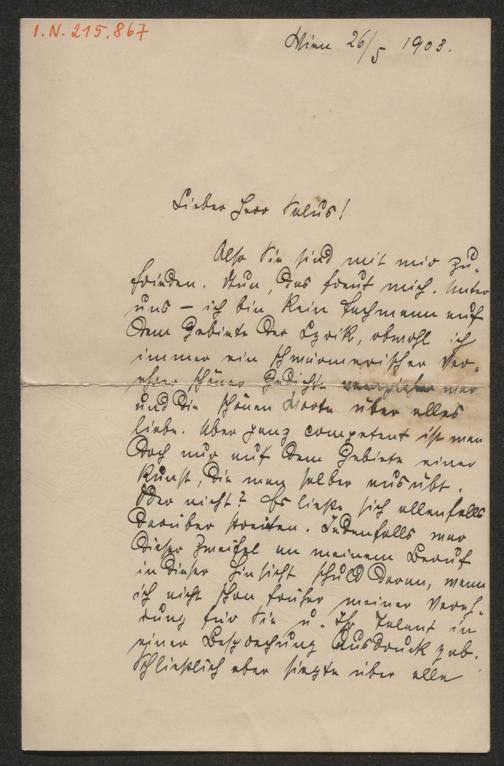 I.N. 215.867
Wien 26/5 1903.
Lieber Herr Salus!
Also Sie sind mit mir zu-
frieden. Nun, das freut mich. Unter
uns – ich bin kein Fachmann auf
dem Gebiete der Lyrik, obwohl ich
immer ein schwärmerischer Ver-
ehrer schöner Gedichte war
und die schönen Worte über alles
liebe. Aber ganz competent ist man
doch nur auf dem Gebiete einer
Kunst, die man selber ausübt.
Oder nicht? Es ließe sich allenfalls
darüber streiten. Jedenfalls war
dieser Zweifel an meinem Beruf
in dieser Hinsicht schuld daran, wenn
ich nicht schon früher meiner Vereh-
rung für Sie u. Ihr Talent in
einer Besprechung Ausdruck gab.
Schließlich aber siegte über alle